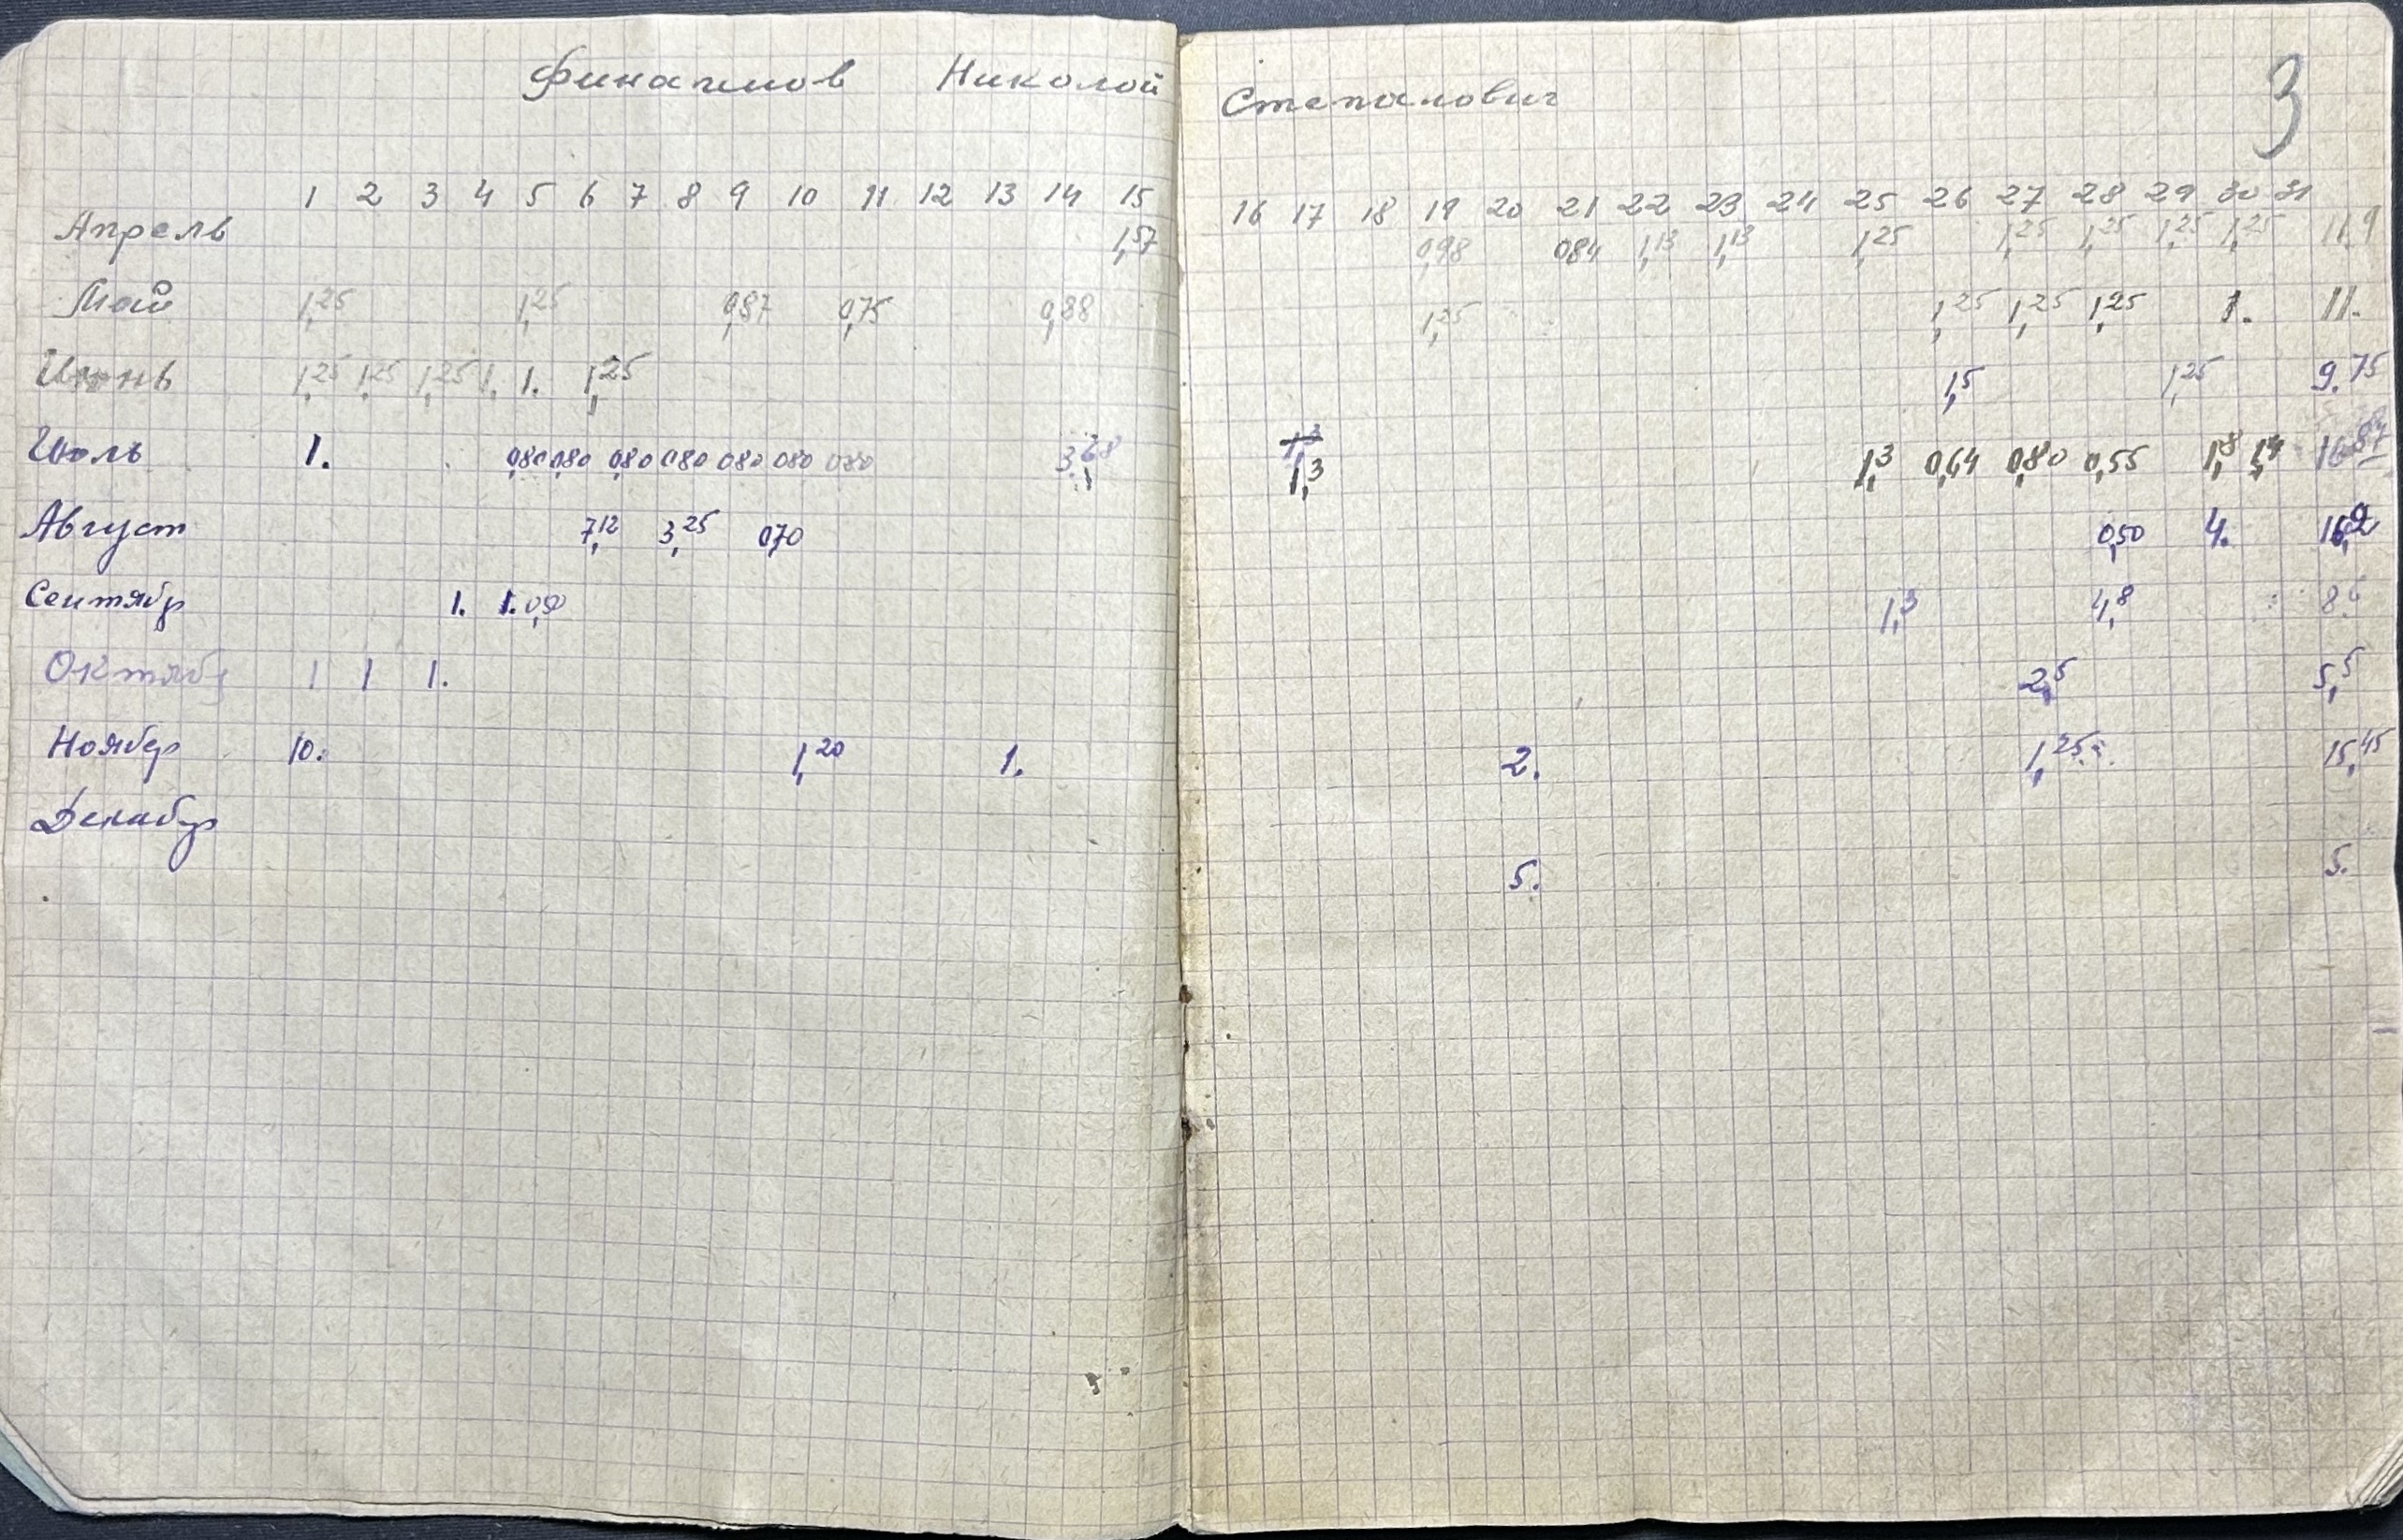 Финагинов Николай Степанович 3
1 2 3 4 5 6 7 8 9 10 11 12 13 14 15 16 17 18 19 20 21 22 23 24 25 26 27 28 29 30 31
Апрель 1,57 0,98 0,84 1,13 1,13 1,25 1,25 1,25 1,25 1,25 11,9
Май 1,25 1,25 0,87 0,75 0,88 1,25 1,25 1,25 1,25 1. 11.
Июнь 1,25 1,25 1,25 1. 1. 1,25 1,5 1,25 9.75
Июль 1. 0,80 0,80 0,80 0,80 0,80 0,80 0,80 3,68 1,3 1,3 0,64 0,80 0,55 1,8 16,87
Август 7,12 3,25 0,70 0,50 4. 16,2
Сентябр 1. 1. 1,3 4,8 8,6
Октябр 1 1 1. 2,5 5,5
Ноябр 10. 1,20 1. 2. 1,25 15,45
Декабр
5. 5.